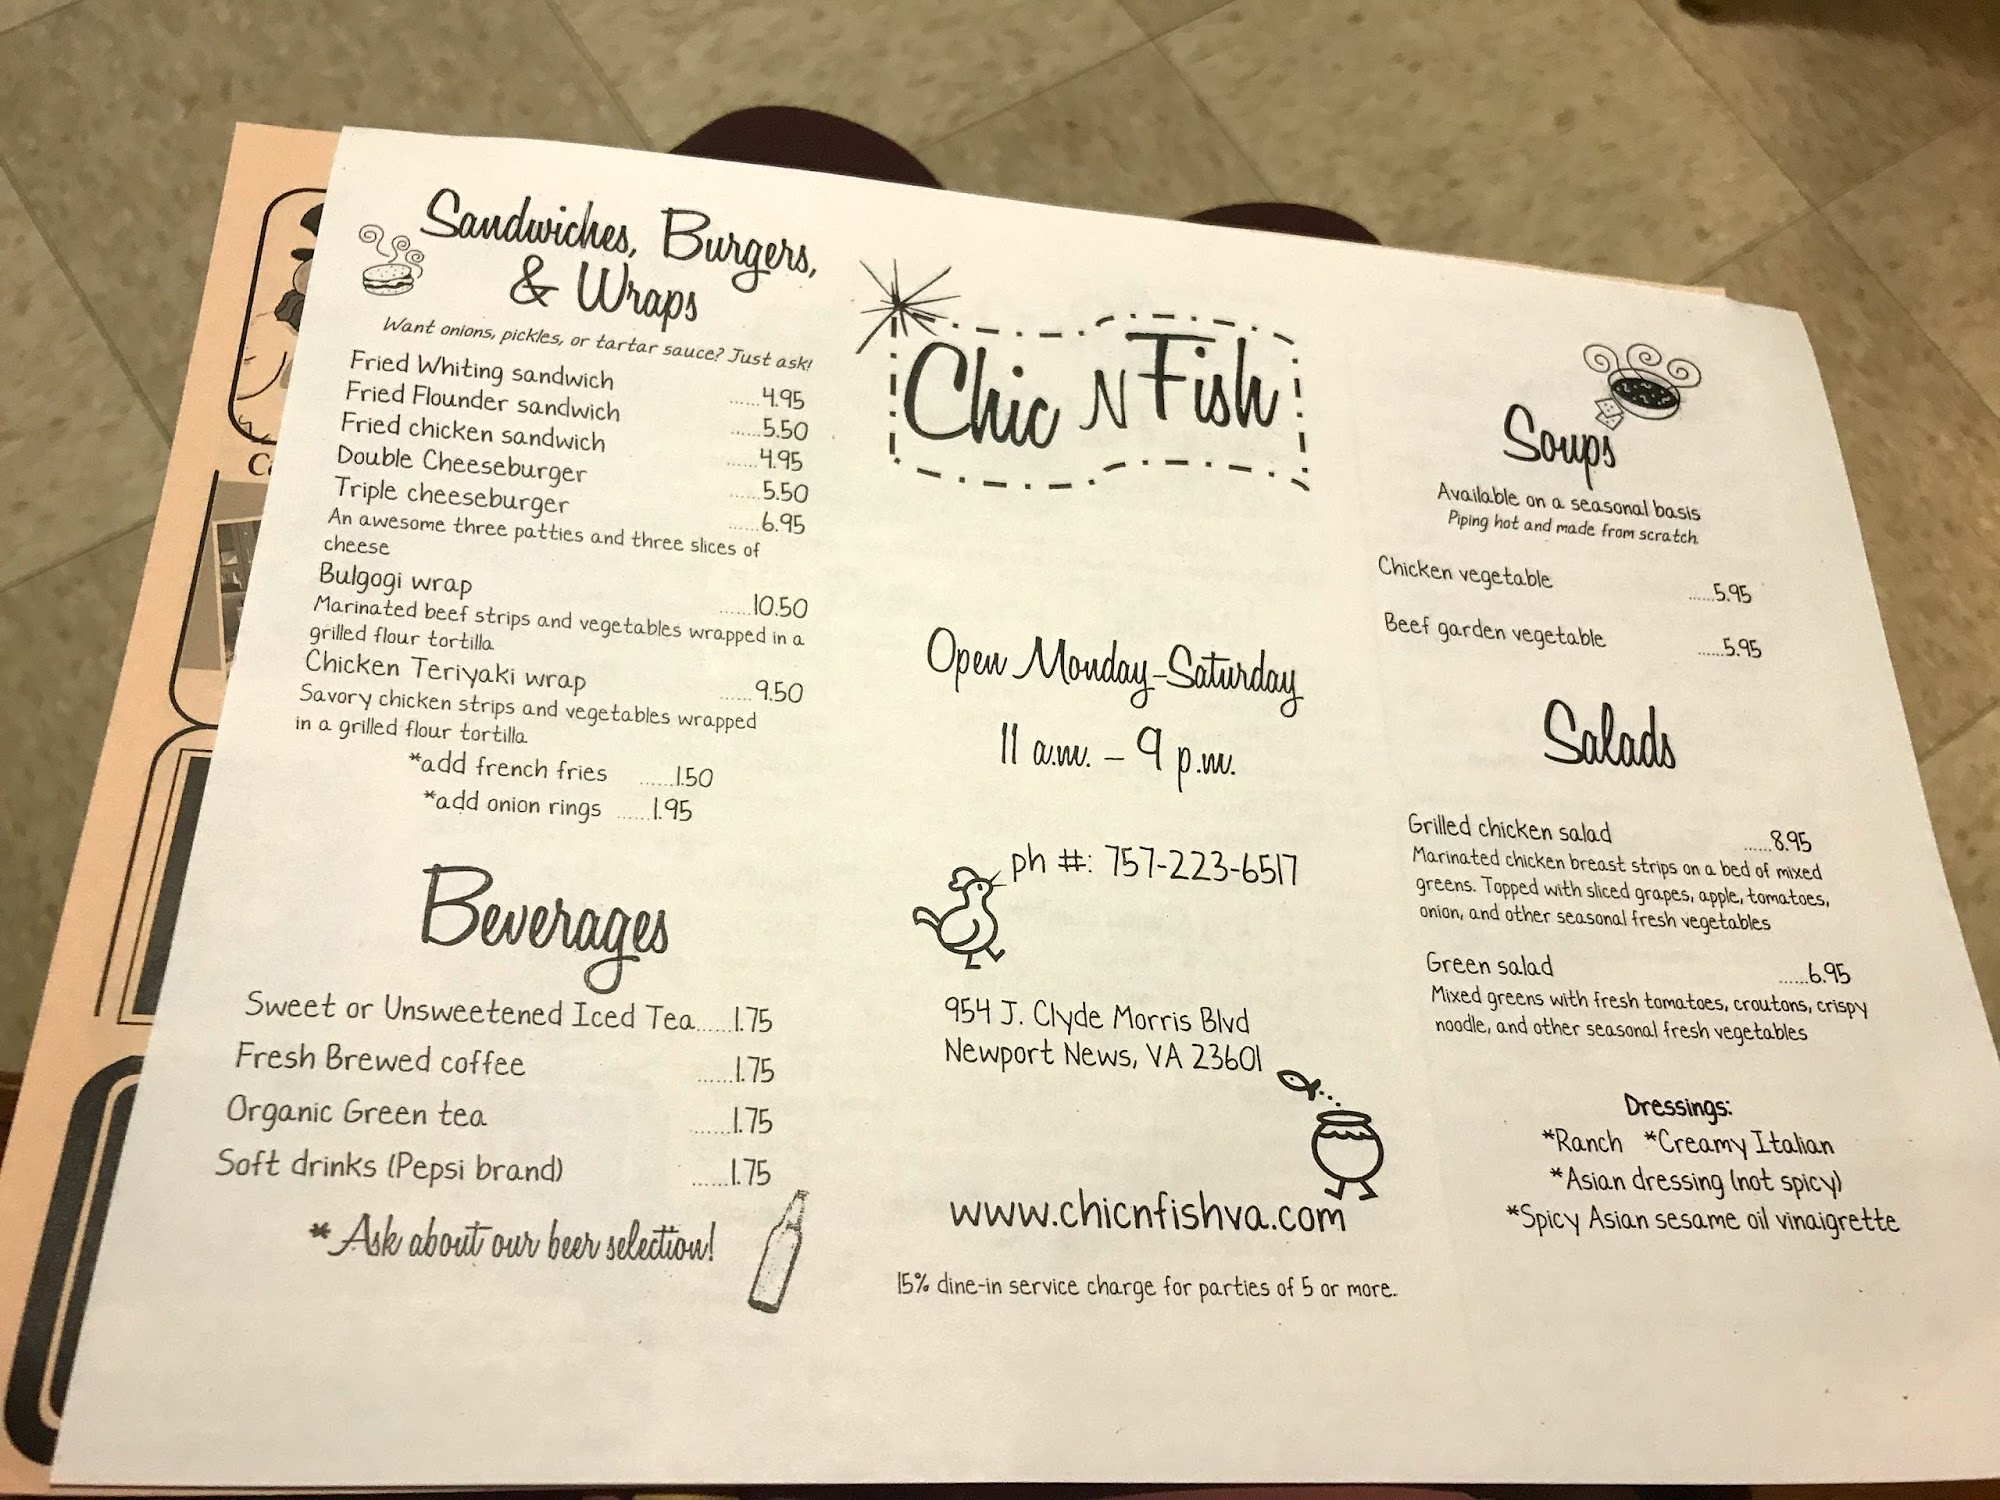 Sandwiches, Burgers,
& Wraps
Want onions, pickles, or tartar sauce? Just ask!
Fried Whiting sandwich ......4.95
Fried Flounder sandwich ......5.50
Fried chicken sandwich ......4.95
Double Cheeseburger ......5.50
Triple cheeseburger ......6.95
An awesome three patties and three slices of
cheese
Bulgogi wrap ......10.50
Marinated beef strips and vegetables wrapped in a
grilled flour tortilla
Chicken Teriyaki wrap ......9.50
Savory chicken strips and vegetables wrapped
in a grilled flour tortilla
*add french fries ......1.50
*add onion rings ......1.95
Beverages
Sweet or Unsweetened Iced Tea......1.75
Fresh Brewed coffee ......1.75
Organic Green tea ......1.75
Soft drinks (Pepsi brand) ......1.75
*Ask about our beer selection!
Chic N Fish
Open Monday-Saturday
11 a.m. - 9 p.m.
ph #: 757-223-6517
954 J. Clyde Morris Blvd
Newport News, VA 23601
www.chicnfishva.com
15% dine-in service charge for parties of 5 or more.
Soups
Available on a seasonal basis
Piping hot and made from scratch.
Chicken vegetable ......5.95
Beef garden vegetable ......5.95
Salads
Grilled chicken salad ......8.95
Marinated chicken breast strips on a bed of mixed
greens. Topped with sliced grapes, apple, tomatoes,
onion, and other seasonal fresh vegetables
Green salad ......6.95
Mixed greens with fresh tomatoes, croutons, crispy
noodle, and other seasonal fresh vegetables
Dressings:
*Ranch *Creamy Italian
*Asian dressing (not spicy)
*Spicy Asian sesame oil vinaigrette